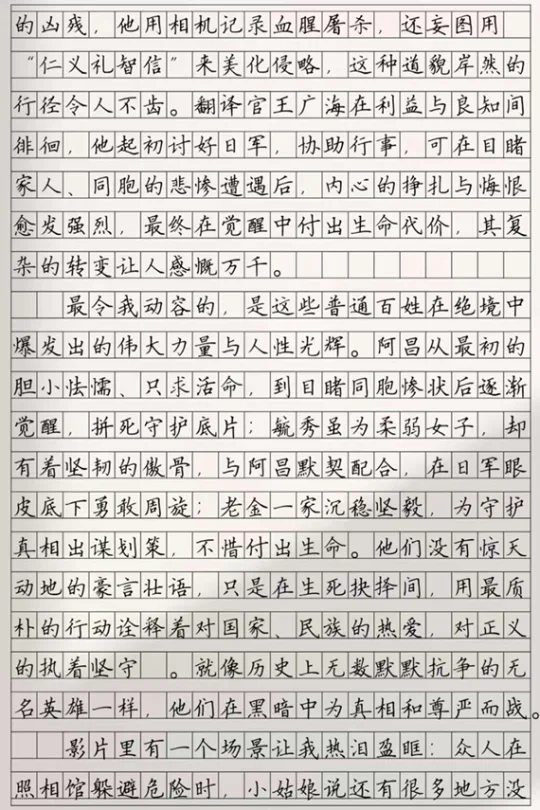 的凶残，他用相机记录血腥屠杀，还妄图用
“仁义礼智信”来美化侵略，这种道貌岸然的
行径令人不齿。翻译官王广海在利益与良知间
徘徊，他起初讨好日军，协助行事，可在目睹
家人、同胞的悲惨遭遇后，内心的挣扎与悔恨
愈发强烈，最终在觉醒中付出生命代价，其复
杂的转变让人感慨万千。
最令我动容的，是这些普通百姓在绝境中
爆发出的伟大力量与人性光辉。阿昌从最初的
胆小怯懦、只求活命，到目睹同胞惨状后逐渐
觉醒，拼死守护底片；毓秀虽为柔弱女子，却
有着坚韧的傲骨，与阿昌默契配合，在日军眼
皮底下勇敢周旋；老金一家沉稳坚毅，为守护
真相出谋划策，不惜付出生命。他们没有惊天
动地的豪言壮语，只是在生死抉择间，用最质
朴的行动诠释着对国家、民族的热爱，对正义
的执着坚守 。就像历史上无数默默抗争的无
名英雄一样，他们在黑暗中为真相和尊严而战。
影片里有一个场景让我热泪盈眶：众人在
照相馆躲避危险时，小姑娘说还有很多地方没